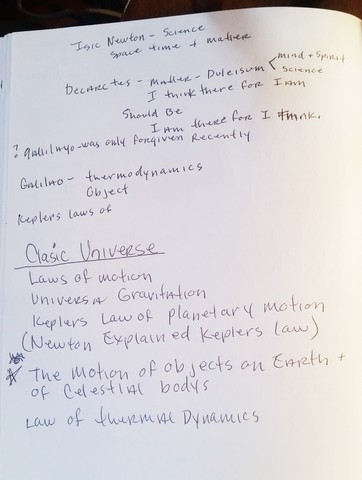 Isic Newton - Science
Space time + matter
Decarctes - matter - Duleisum < mind + Spirit
Science
I think there for I am
Should Be
I am there for I think.
? Gallilayo - was only forgiven recently
Galilao - thermodynamics
Object
Keplers laws of
Clasic Universe
Laws of motion
Universal Gravitation
Keplers Law of planetary motion
(Newton Explained Keplers law)
The motion of objects on Earth +
of Celestial bodys
Law of thermal Dynamics